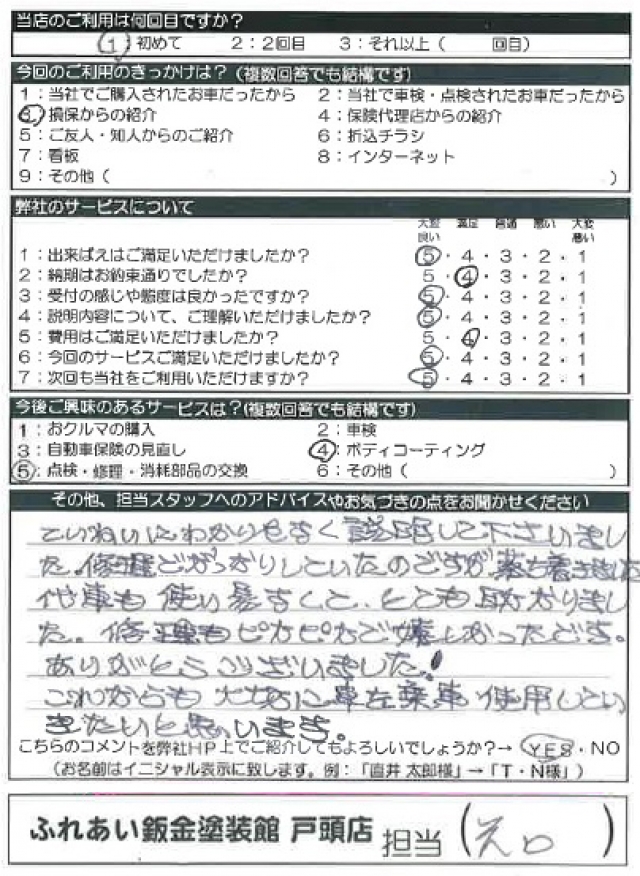 当店のご利用は何回目ですか?
1 初めて 2:2回目 3:それ以上( 回目)
今回のご利用のきっかけは?(複数回答でも結構です)
1:当社でご購入されたお車だったから 2:当社で車検・点検されたお車だったから
3 損保からの紹介 4:保険代理店からの紹介
5:ご友人・知人からのご紹介 6:折込チラシ
7:看板 8:インターネット
9:その他( )
弊社のサービスについて
大変良い 満足 普通 悪い 大変悪い
1:出来ばえはご満足いただけましたか? 5・4・3・2・1
2:納期はお約束通りでしたか? 5・4・3・2・1
3:受付の感じや態度は良かったですか? 5・4・3・2・1
4:説明内容について、ご理解いただけましたか? 5・4・3・2・1
5:費用はご満足いただけましたか? 5・4・3・2・1
6:今回のサービスご満足いただけましたか? 5・4・3・2・1
7:次回も当社をご利用いただけますか? 5・4・3・2・1
今後ご興味のあるサービスは?(複数回答でも結構です)
1:おクルマの購入 2:車検
3:自動車保険の見直し 4:ボディコーティング
5:点検・修理・消耗部品の交換 6:その他( )
その他、担当スタッフへのアドバイスやお気づきの点をお聞かせください
ていねいにわかりやすく説明して下さいまし
た。修理でがっかりしていたのですが
代車も使い易すくて、とても助かりまし
た。修理もピカピカで嬉しかったです。
ありがとうございました!
これからも大切に車を 使用してい
きたいと思います。
こちらのコメントを弊社HP上でご紹介してもよろしいでしょうか?→ YES・NO
(お名前はイニシャル表示に致します。例:「直井 太郎様」→「T・N様」)
ふれあい鈑金塗装館 戸頭店 担当( )